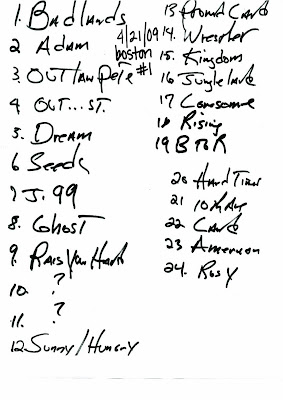 1. Badlands
2 Adam
3. OUTlaw Pete
4 OUT...ST.
5. Dream
6 Seeds
7 J. 99
8. Ghost
9. Rais Your Hand
10. ?
11. ?
12. Sunny/Hungry
4/21/09
boston
#1
13 Promd Land
14. Wrestler
15. Kingdom
16 Jungleland
17 Lonesome
18 Rising
19 BTOR
20 Hard Times
21 10th Ave
22 Land
23 American
24. Rosy